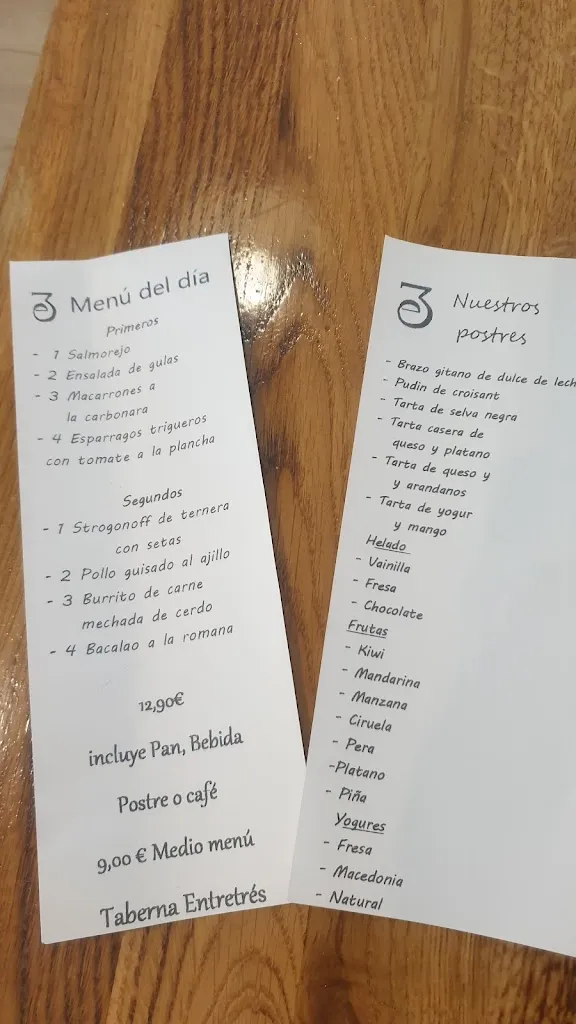 Menú del día
Primeros
- 1 Salmorejo
- 2 Ensalada de gulas
- 3 Macarrones a
la carbonara
- 4 Esparragos trigueros
con tomate a la plancha
Segundos
- 1 Strogonoff de ternera
con setas
- 2 Pollo guisado al ajillo
- 3 Burrito de carne
mechada de cerdo
- 4 Bacalao a la romana
12,90€
incluye Pan, Bebida
Postre o café
9,00 € Medio menú
Taberna Entretrés
Nuestros
postres
- Brazo gitano de dulce de lech
- Pudin de croisant
- Tarta de selva negra
- Tarta casera de
queso y platano
- Tarta de queso y
y arandanos
- Tarta de yogur
y mango
Helado
- Vainilla
- Fresa
- Chocolate
Frutas
- Kiwi
- Mandarina
- Manzana
- Ciruela
- Pera
-Platano
- Piña
Yogures
- Fresa
- Macedonia
- Natural